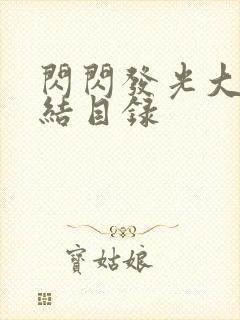 閃閃發光大
結目錄
寶姑娘